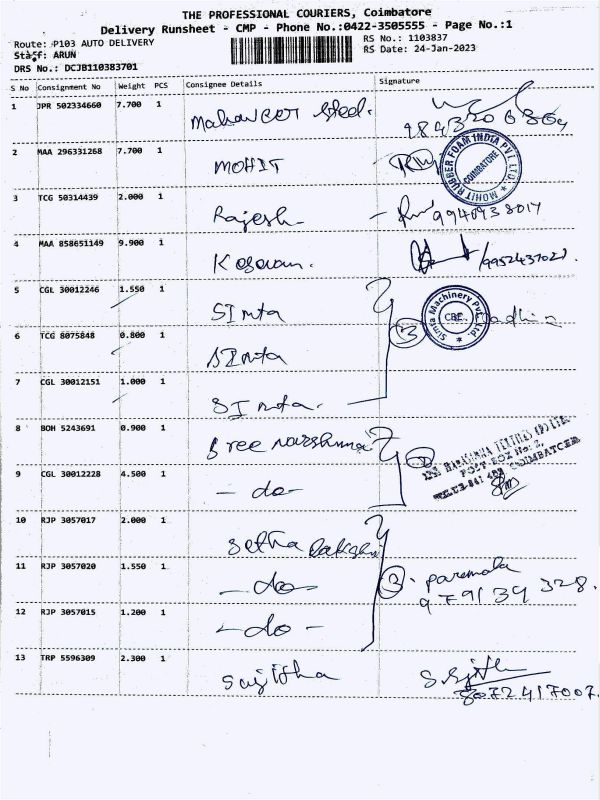 THE PROFESSIONAL COURIERS, Coimbatore
Delivery Runsheet - CMP - Phone No.:0422-3505555 - Page No.:1
Route: P103 AUTO DELIVERY RS No.: 1103837
Staff: ARUN RS Date: 24-Jan-2023
DRS No.: DCJB110383701
S No Consignment No Weight PCS Consignee Details Signature
1 JPR 502334660 7.700 1 Mahaveer Steel.
2 MAA 296331268 7.700 1 MOHIT
MOHIT RUBBER FOAM INDIA PVT. LTD. COIMBATORE
3 TCG 50314439 2.000 1 Rajesh
4 MAA 858651149 9.900 1 Kesavan. /9952437021.
5 CGL 30012246 1.550 1 SImta
Simta Machinery Pvt. Ltd. CBE.
6 TCG 8075848 0.800 1 SImta 3
7 CGL 30012151 1.000 1 SImta.
8 BOH 5243691 0.900 1 Sree narshma
POST BOX No: 2,
COIMBATORE
9 CGL 30012228 4.500 1 -do-
10 RJP 3057017 2.000 1
11 RJP 3057020 1.550 1 -do- 3. paremala
979139328.
12 RJP 3057015 1.200 1 -do-
13 TRP 5596309 2.300 1 Sujitha
8072417007.